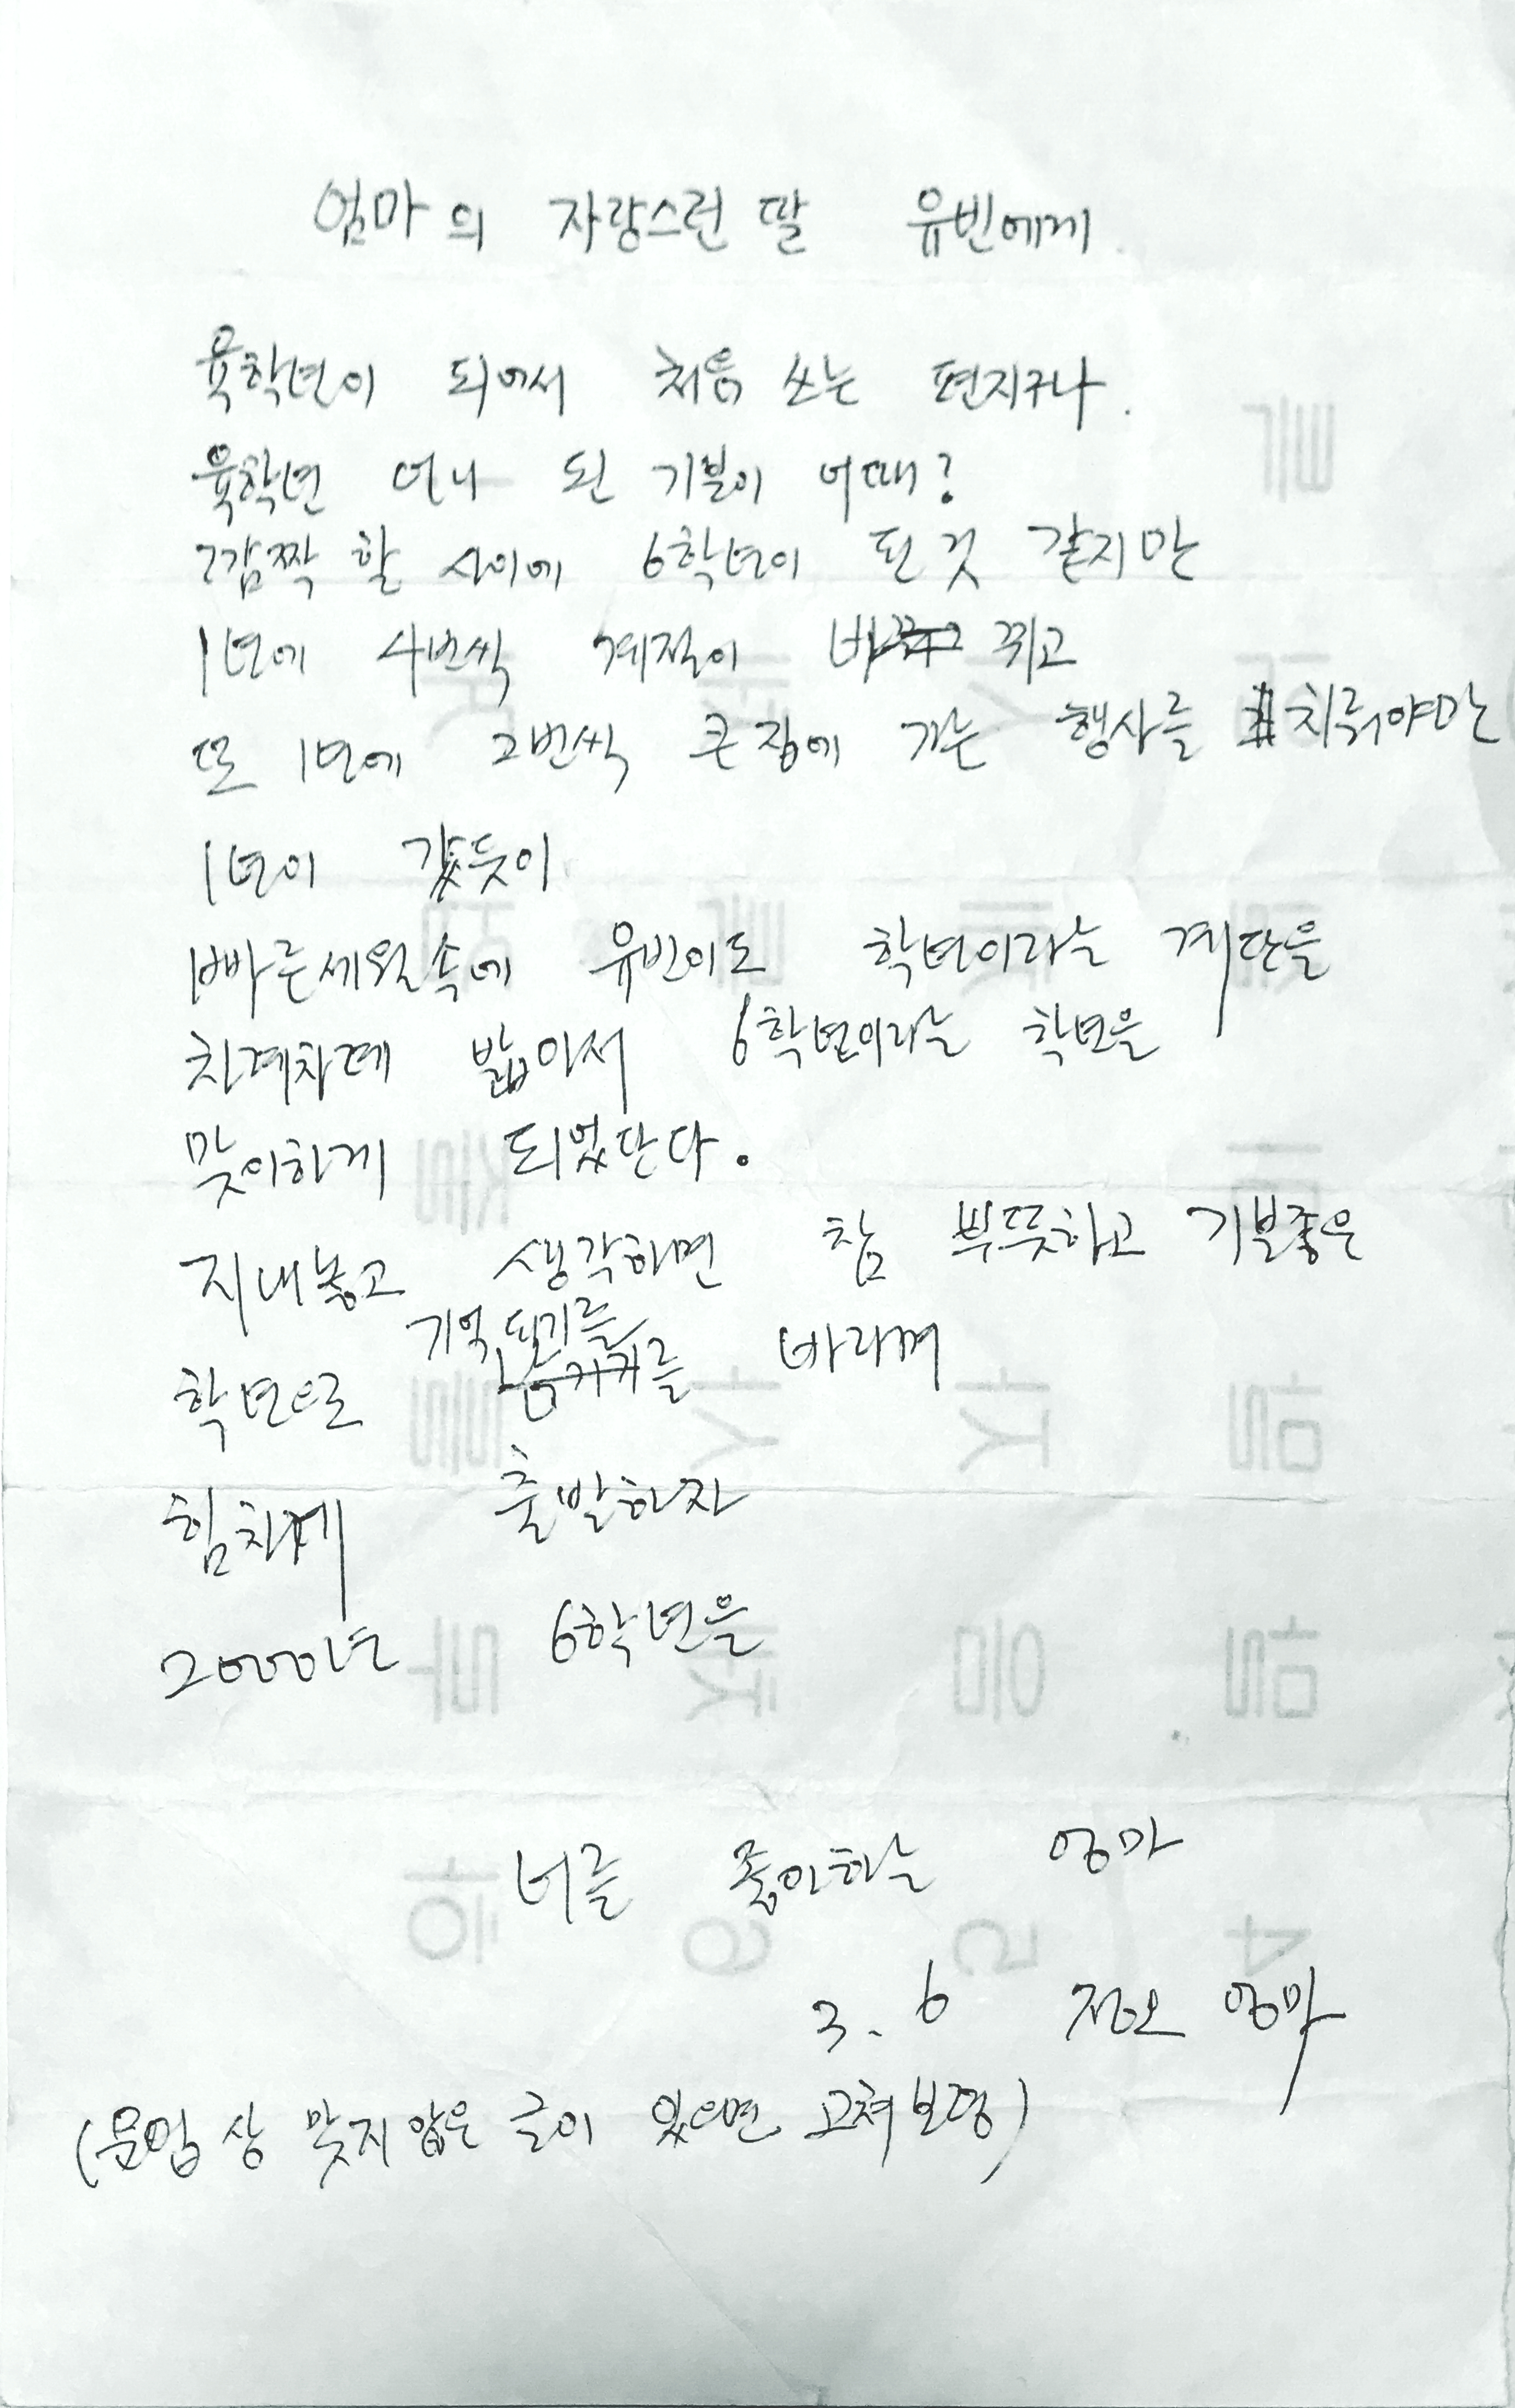 엄마의 자랑스런 딸 유빈에게
육학년이 되어서 처음 쓰는 편지구나.
육학년 언니 된 기분이 어때?
깜짝 할 사이에 6학년이 된 것 같지만
1년에 4번씩 계절이 바뀌고
또 1년에 2번씩 큰집에 가는 행사를 치뤄야만
1년이 갔듯이
빠른세월속에 유빈이도 학년이라는 계단을
차례차례 밟아서 6학년이라는 학년을
맞이하게 되었단다.
지내놓고 생각하면 참 뿌듯하고 기분좋은
학년으로 기억되기를 바라며
힘차게 출발하자
2000년 6학년을
너를 좋아하는 엄마
3. 6 정오 엄마
(문법상 맞지않은 글이 있으면 고쳐보렴)